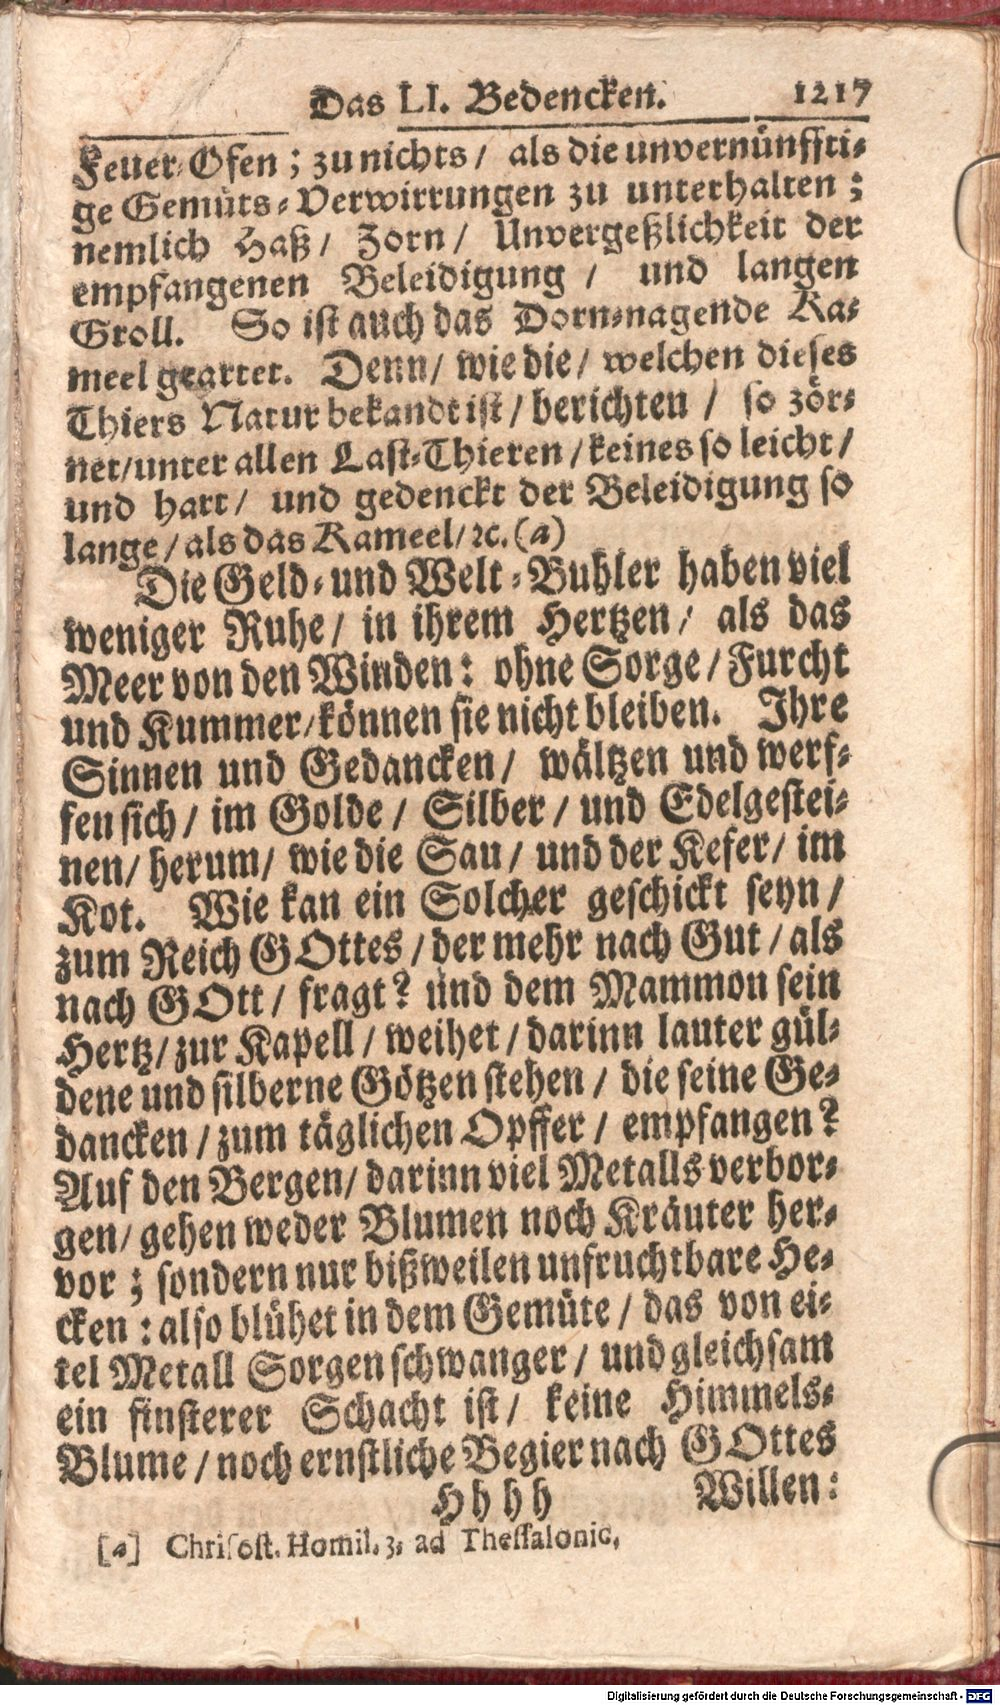 Das LI. Bedencken. 1217
Feuer-Ofen; zu nichts / als die unvernünffti-
ge Gemüts-Verwirrungen zu unterhalten;
nemlich Haß / Zorn / Unvergeßlichkeit der
empfangenen Beleidigung / und langen
Groll. So ist auch das Dorn-nagende Ka-
meel geartet. Denn / wie die / welchen dieses
Thiers Natur bekandt ist / berichten / so zör-
net / unter allen Last-Thieren / keines so leicht /
und hart / und gedenckt der Beleidigung so
lange / als das Kameel / ꝛc. (a)
Die Geld- und Welt-Buhler haben viel
weniger Ruhe / in ihrem Hertzen / als das
Meer von den Winden: ohne Sorge / Furcht
und Kummer / können sie nicht bleiben. Ihre
Sinnen und Gedancken / wältzen und werf-
fen sich / im Golde / Silber / und Edelgestei-
nen / herum / wie die Sau / und der Kefer / im
Kot. Wie kan ein Solcher geschickt seyn /
zum Reich GOttes / der mehr nach Gut / als
nach GOtt / fragt? und dem Mammon sein
Hertz / zur Kapell / weihet / darinn lauter gül-
dene und silberne Götzen stehen / die seine Ge-
dancken / zum täglichen Opffer / empfangen?
Auf den Bergen / darinn viel Metalls verbor-
gen / gehen weder Blumen noch Kräuter her-
vor; sondern nur bißweilen unfruchtbare He-
cken: also blühet in dem Gemüte / das von ei-
tel Metall Sorgen schwanger / und gleichsam
ein finsterer Schacht ist / keine Himmels-
Blume / noch ernstliche Begier nach GOttes
Hhhh Willen:
[a] Chrisost. Homil. 3. ad Thessalonic.
Digitalisierung gefördert durch die Deutsche Forschungsgemeinschaft - DFG